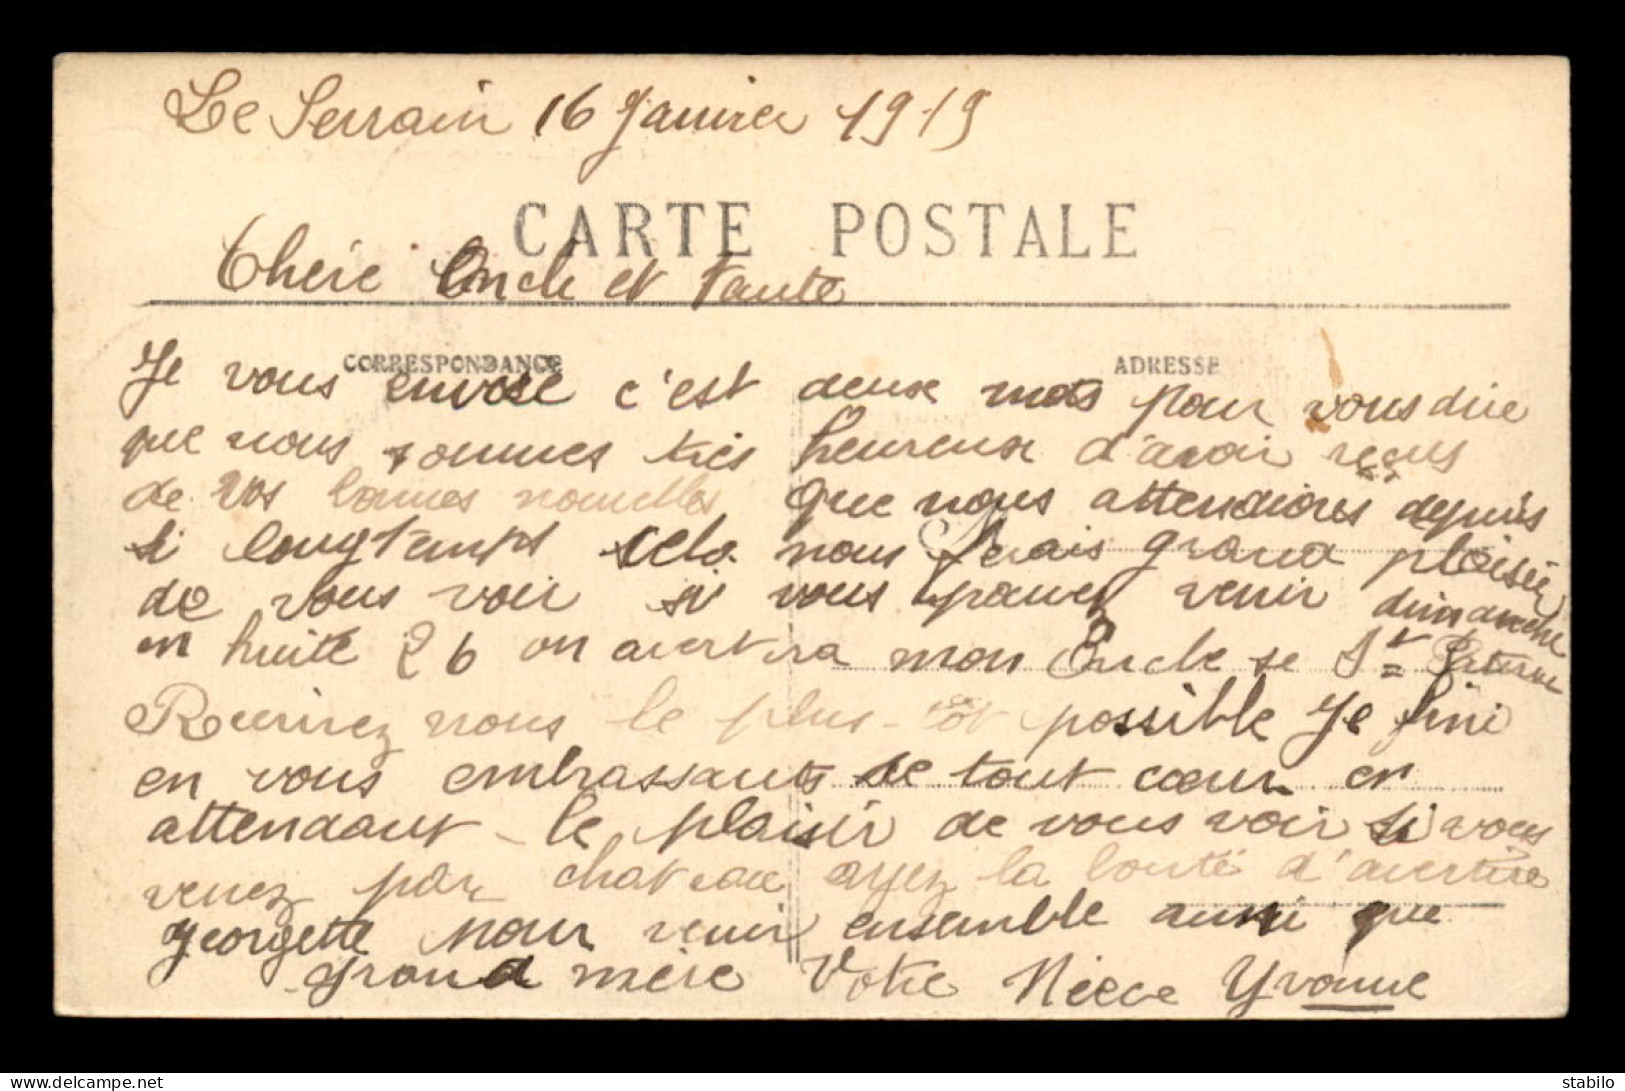 Le Serrain 16 Janvier 1919
CARTE POSTALE
Chère Oncle et Tante
CORRESPONDANCE
ADRESSE
Je vous envoie c'est deux mots pour vous dire
que nous sommes très heureux d'avoir reçus
de vos bonnes nouvelles que nous attendions depuis
si longtemps cela nous ferais grand plaisir
de vous voir si vous pouvez venir dimanche
en huite 26 on avertira mon Oncle de St Paterne
Récrirez nous le plus-tôt possible Je fini
en vous embrassants de tout cœur en
attendant le plaisir de vous voir si vous
venez par chateau ayez la bonté d'avertire
Georgette pour venir ensemble aussi que
grand mère Votre Nièce Yvonne
stabilo